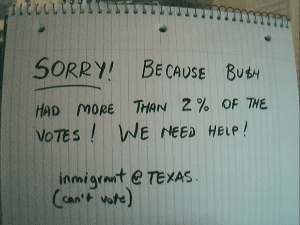 SORRY! BECAUSE BUSH
HAD MORE THAN 2% OF THE
VOTES! WE NEED HELP!
inmigrant @ TEXAS.
(can't vote)